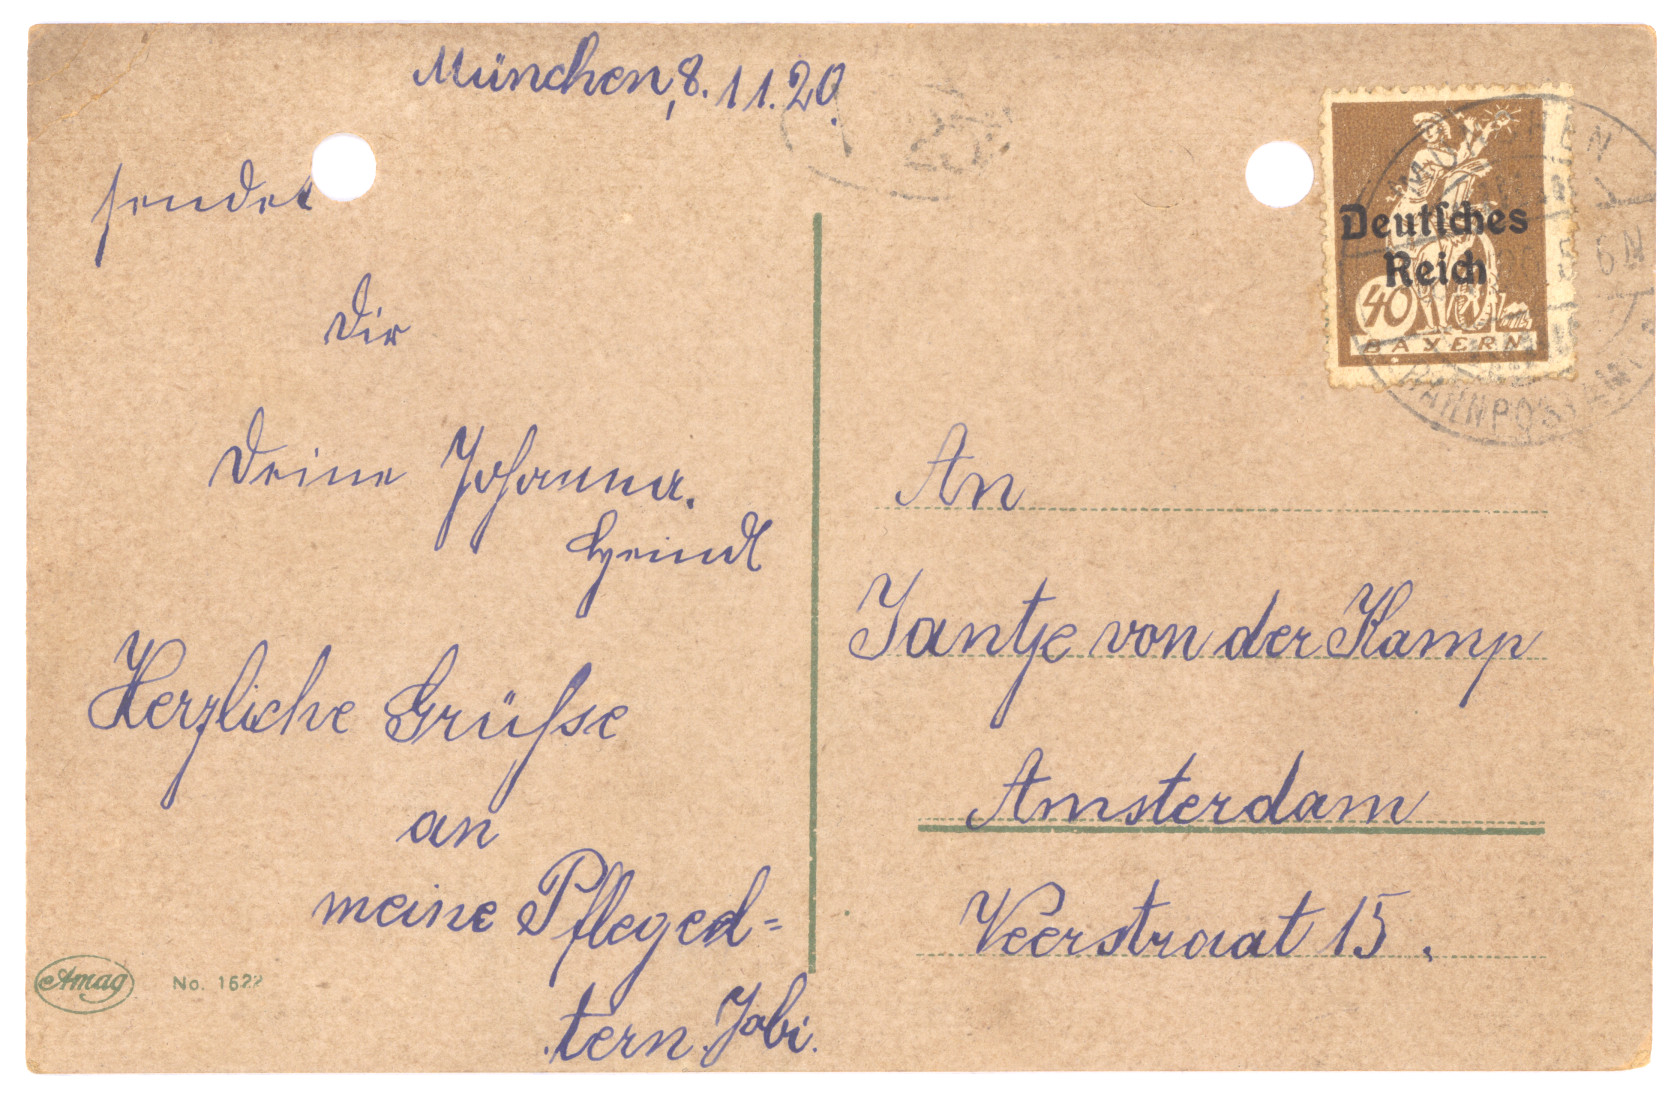 München, 8. 11. 20.
sendet
Dir
Deine Johanna.
Heindl
Herzliche Grüsse
an
meine Pfleged=
tern. Jobi.
Amag
No. 1622
Deutsches
Reich
40
BAYERN
MÜNCHEN
6N
BAHNPOSTAMT
An
Jantje von der Kamp
Amsterdam
Veerstraat 15.